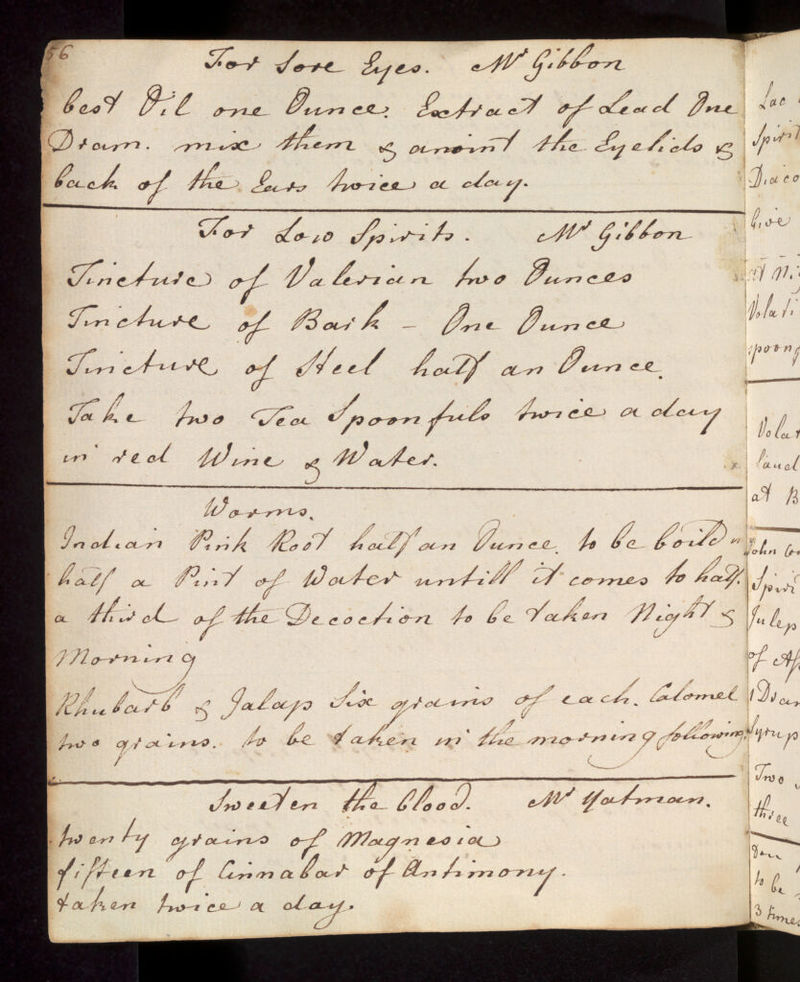 56
For Sore Eyes. Mr Gibbon
best Oil one Ounce. Extract of Lead One
Dram. mix them & anoint the Eyelids &
back of the Ears twice a day.
For Low Spirits. Mr Gibbon
Tincture of Valerian two Ounces
Tincture of Bark - One Ounce
Tincture of Steel half an Ounce.
Take two Tea Spoonfuls twice a day
in red Wine & Water.
Worms.
Indian Pink Root half an Ounce. to be boild in
half a Pint of Water untill it comes to half.
a third of the Decoction to be taken Night &
Morning
Rhubarb & Jalap Six grains of each. Calomel
two grains. to be taken in the morning following.
Sweeten the blood. Mr Yatman.
twenty grains of Magnesia
fifteen of Cinnabar of Antimony.
taken twice a day.
Lac
Spirit
Diaco
Give
Volati
spoonf
Volat
laud
at B
John
Spiri
Julep
of
1 Dra
Syrup
Two
three
to be
3 times